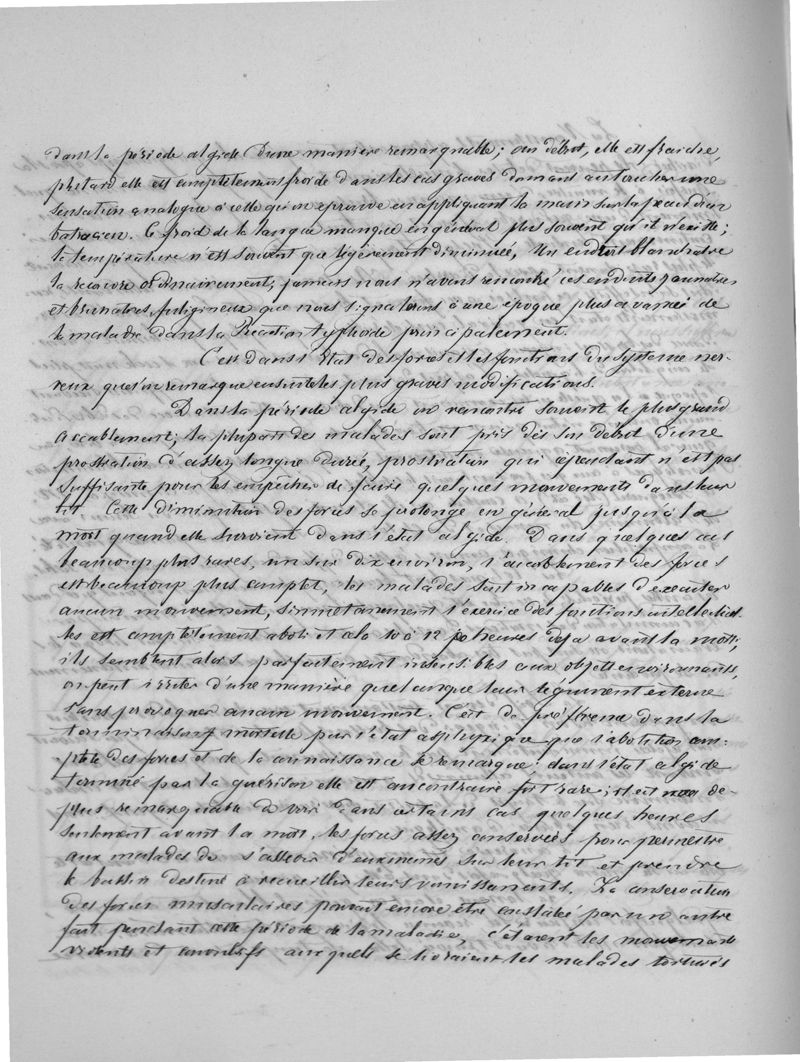 dans la période algide d'une manière remarquable; au début, elle est fraiche,
plus tard elle est complètement froide dans les cas graves donnant au toucher une
sensation analogue à celle qu'on éprouve en appliquant la main sur la peau d'un
batracien. Ce froid de la langue manque en général plus souvent qu'il n'existe;
la température n'est souvent que légèrement diminuée, Un enduit blanchatre
la recouvre ordinairement; jamais nous n'avons rencontré ces enduits jaunatres
et brunatres, fuligineux que nous signalerons à une époque plus avancée de
la maladie dans la Réaction typhoïde principalement.
C'est dans l'Etat des forces et les fonctions du Systeme ner-
veux qu'on remarque ensuite les plus graves modifications.
Dans la période algide on rencontre souvent le plus grand
accablement; la plupart des malades sont pris dès son début d'une
prostration d'assez longue durée, prostration qui cependant n'est pas
suffisante pour les empêcher de faire quelques mouvements dans leur
lit. Cette diminution des forces se prolonge en général jusqu'à la
mort quand elle survient dans l'état algide. Dans quelques cas
beaucoup plus rares, un sur dix environ, l'accablement des forces
est beaucoup plus complet, les malades sont incapables d'exécuter
aucun mouvement, simultanement l'exercice des fonctions intellectuel-
les est complètement aboli et cela 10 à 12 heures déjà avant la mort;
ils semblent alors parfaitement insensibles aux objets environnants,
on peut irriter d'une manière quelconque leur tégument externe
sans provoquer aucun mouvement. C'est de préférence dans la
terminaison mortelle par l'état asphyxique que l'abolition com-
plète des forces et de la connaissance se remarque; dans l'état algide
terminé par la guérison elle est au contraire fort rare; il est de
plus remarquable de voir dans certains cas quelques heures
seulement avant la mort, les forces assez conservées pour permettre
aux malades de s'asseoir d'eux mêmes sur leur lit et prendre
le bassin destiné à recueillir leurs vomissements. La conservation
des forces musculaires pouvait encore être constatée par un autre
fait pendant cette période de la maladie, c'étaient les mouvements
violents et convulsifs auxquels se livraient les malades torturés